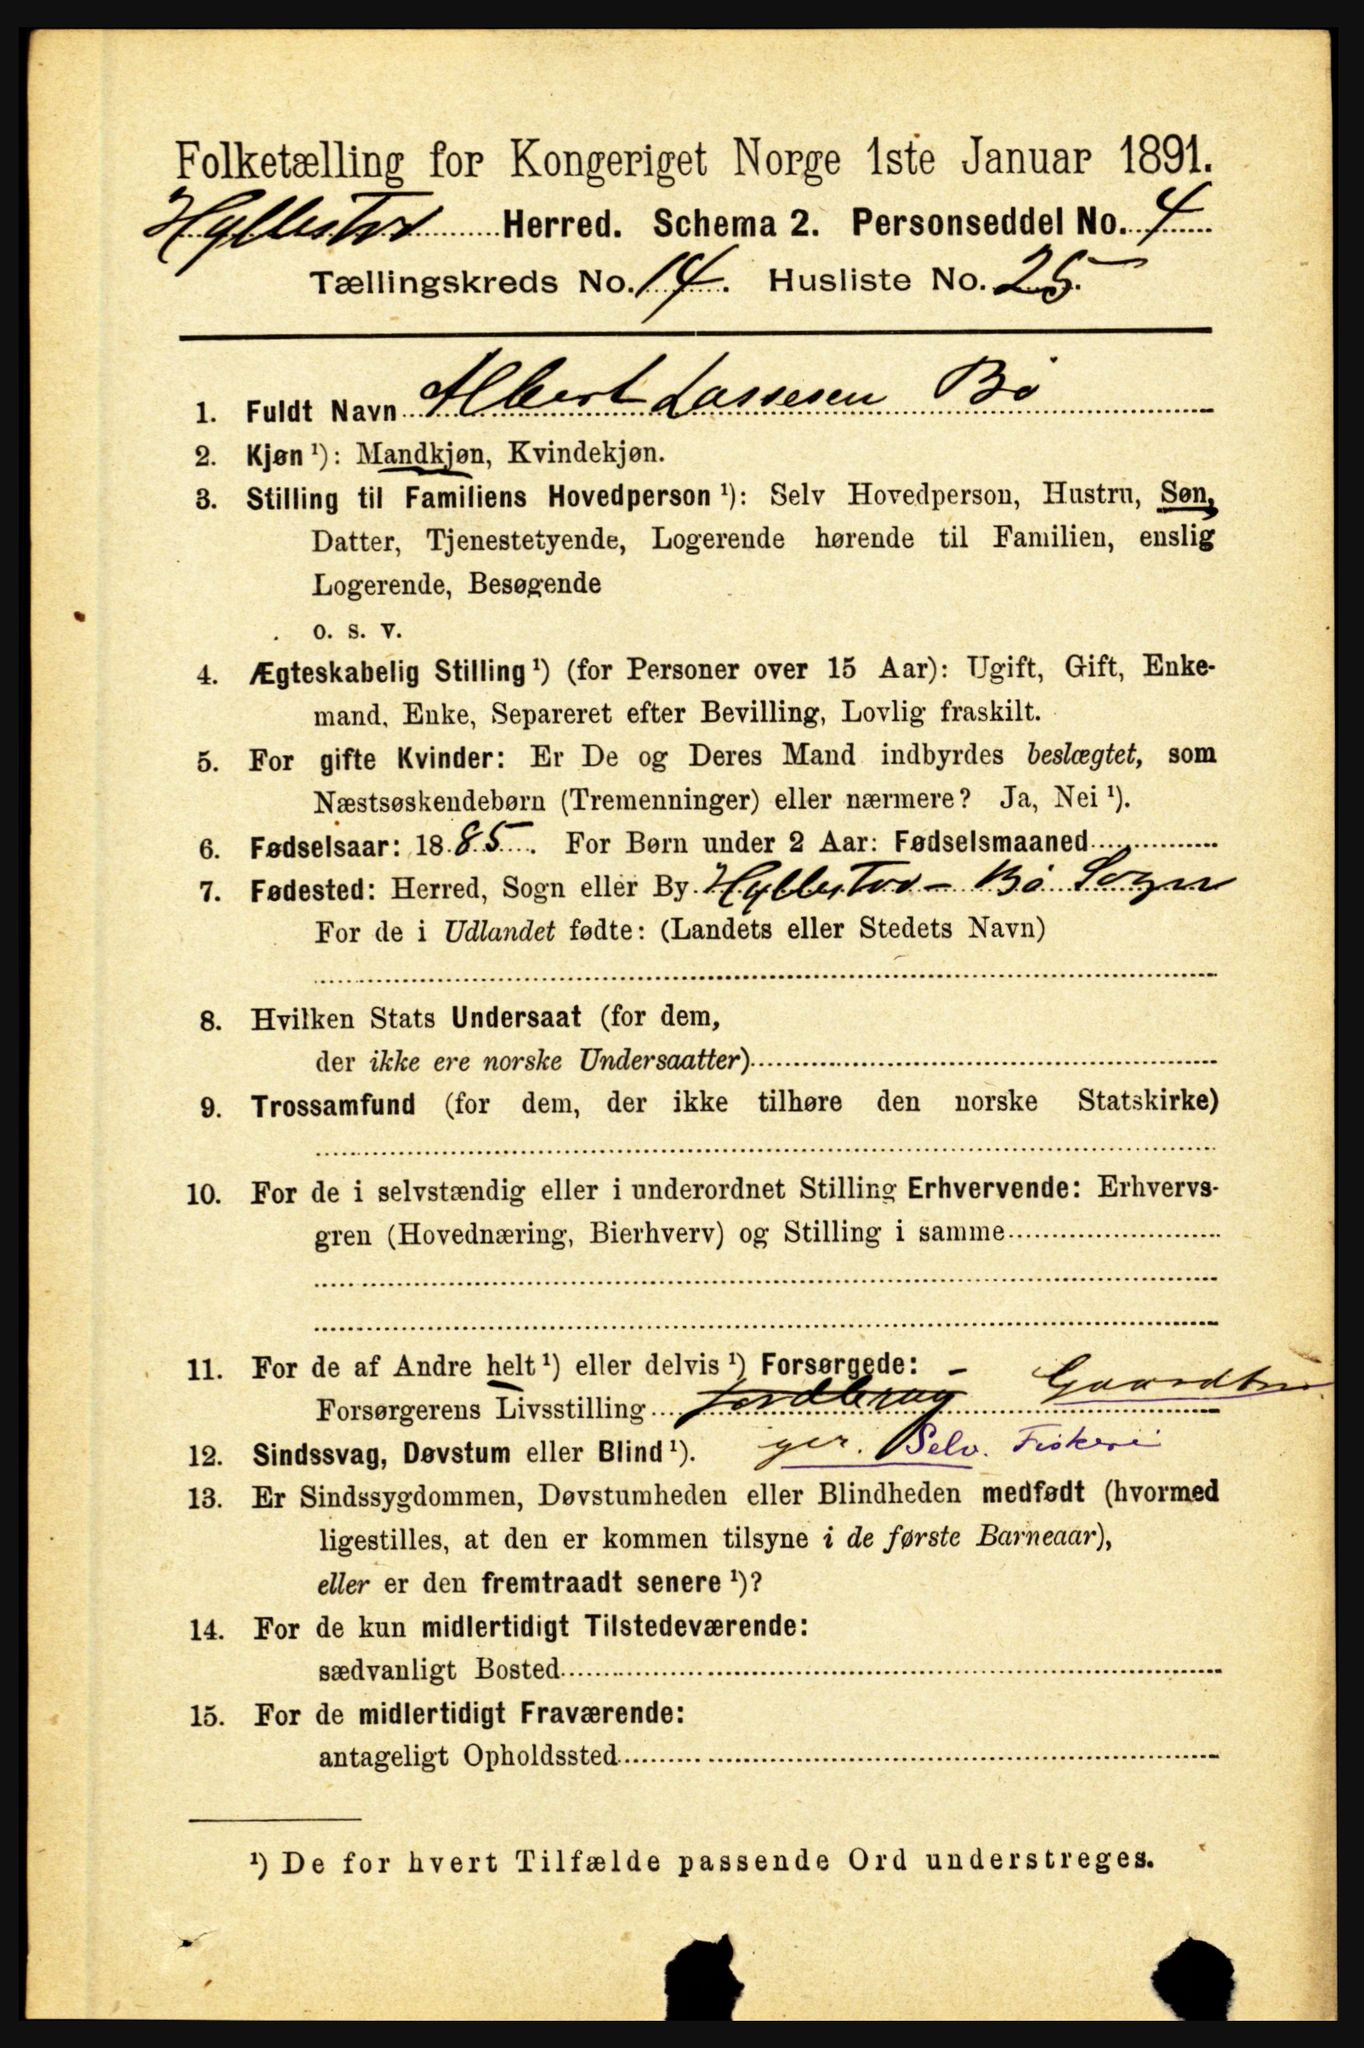 Folketælling for Kongeriget Norge 1ste Januar 1891.
Hyllestad Herred. Schema 2. Personseddel No. 4
Tællingskreds No. 14. Husliste No. 25.
1. Fuldt Navn Albert Lassesen Bö
2. Kjøn ¹): Mandkjøn, Kvindekjøn.
3. Stilling til Familiens Hovedperson ¹): Selv Hovedperson, Hustru, Søn,
Datter, Tjenestetyende, Logerende hørende til Familien, enslig
Logerende, Besøgende
o. s. v.
4. Ægteskabelig Stilling ¹) (for Personer over 15 Aar): Ugift, Gift, Enke-
mand, Enke, Separeret efter Bevilling, Lovlig fraskilt.
5. For gifte Kvinder: Er De og Deres Mand indbyrdes beslægtet, som
Næstsøskendebørn (Tremenninger) eller nærmere? Ja, Nei ¹).
6. Fødselsaar: 1885. For Børn under 2 Aar: Fødselsmaaned
7. Fødested: Herred, Sogn eller By Hyllestad - Bö Sogn
For de i Udlandet fødte: (Landets eller Stedets Navn)
8. Hvilken Stats Undersaat (for dem,
der ikke ere norske Undersaatter)
9. Trossamfund (for dem, der ikke tilhøre den norske Statskirke)
10. For de i selvstændig eller i underordnet Stilling Erhvervende: Erhvervs-
gren (Hovednæring, Bierhverv) og Stilling i samme
11. For de af Andre helt ¹) eller delvis ¹) Forsørgede:
Forsørgerens Livsstilling Jordbrug - Gaardbru
ger. Selv. Fiskeri
12. Sindssvag, Døvstum eller Blind ¹).
13. Er Sindssygdommen, Døvstumheden eller Blindheden medfødt (hvormed
ligestilles, at den er kommen tilsyne i de første Barneaar),
eller er den fremtraadt senere ¹)?
14. For de kun midlertidigt Tilstedeværende:
sædvanligt Bosted
15. For de midlertidigt Fraværende:
antageligt Opholdssted
¹) De for hvert Tilfælde passende Ord understreges.